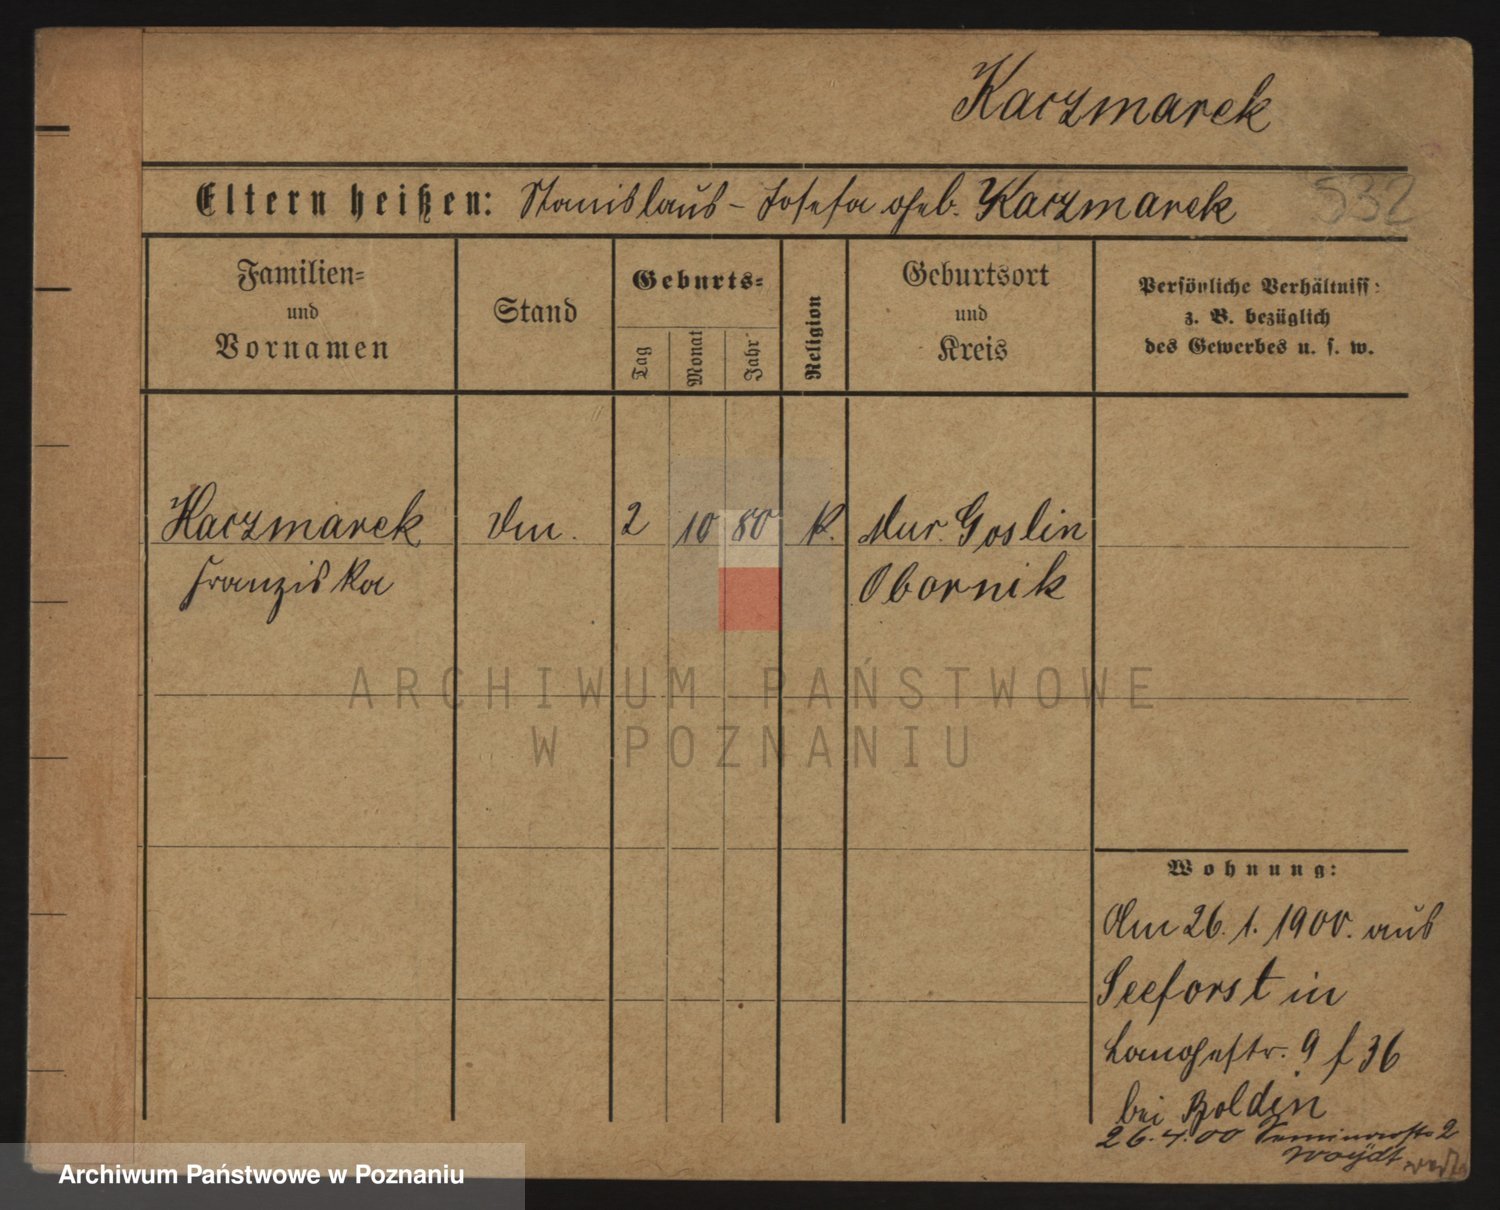 Kaczmarek
532
Eltern heißen: Stanislaus - Josefa geb. Kaczmarek
Familien=
und
Vornamen
Stand
Geburts=
Tag
Monat
Jahr
Religion
Geburtsort
und
Kreis
Persönliche Verhältniss:
z. B. bezüglich
des Gewerbes u. s. w.
Kaczmarek
Franziska
2
10
80
K.
Mur. Goslin
Obornik
ARCHIWUM PAŃSTWOWE
W POZNANIU
Wohnung:
Am 26. 1. 1900. aus
Seeforst in
Langestr. 9 f 36
bei Boldin
26.4.00 Seminarstr 2
Woydt
Archiwum Państwowe w Poznaniu